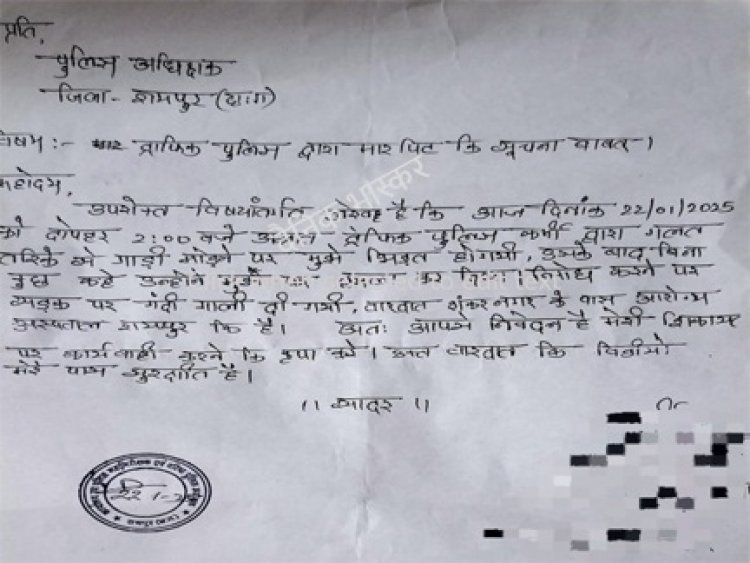 प्रति,
पुलिस अधिक्षक
जिला- रायपुर (छ०ग०)
विषय :- ट्राफिक पुलिस द्वारा मारपिट कि सूचना बाबत् ।
महोदय,
उपरोक्त विषयांतर्गत है कि आज दिनांक 22/01/2025
को दोपहर 2:00 बजे ट्रेफिक पुलिस कर्मी द्वारा गलत
तरिके से गाड़ी मोड़ने पर मुझे होगयी, उसके बाद बिना
कुछ कहे उन्होने कर दिया विरोध करने पर
सड़क पर गंदी गाली दी गयी, वारदात शंकर नगर के पास आरोग्य
अस्पताल रायपुर कि है। अतः आपसे निवेदन है मेरी शिकायत
पर कार्यवाही करने कि कृपा करे। उक्त वारदात कि विडीयो
मेरे पास सुरक्षित है।
।। सादर ।।
दैनिक भास्कर
22-1-2